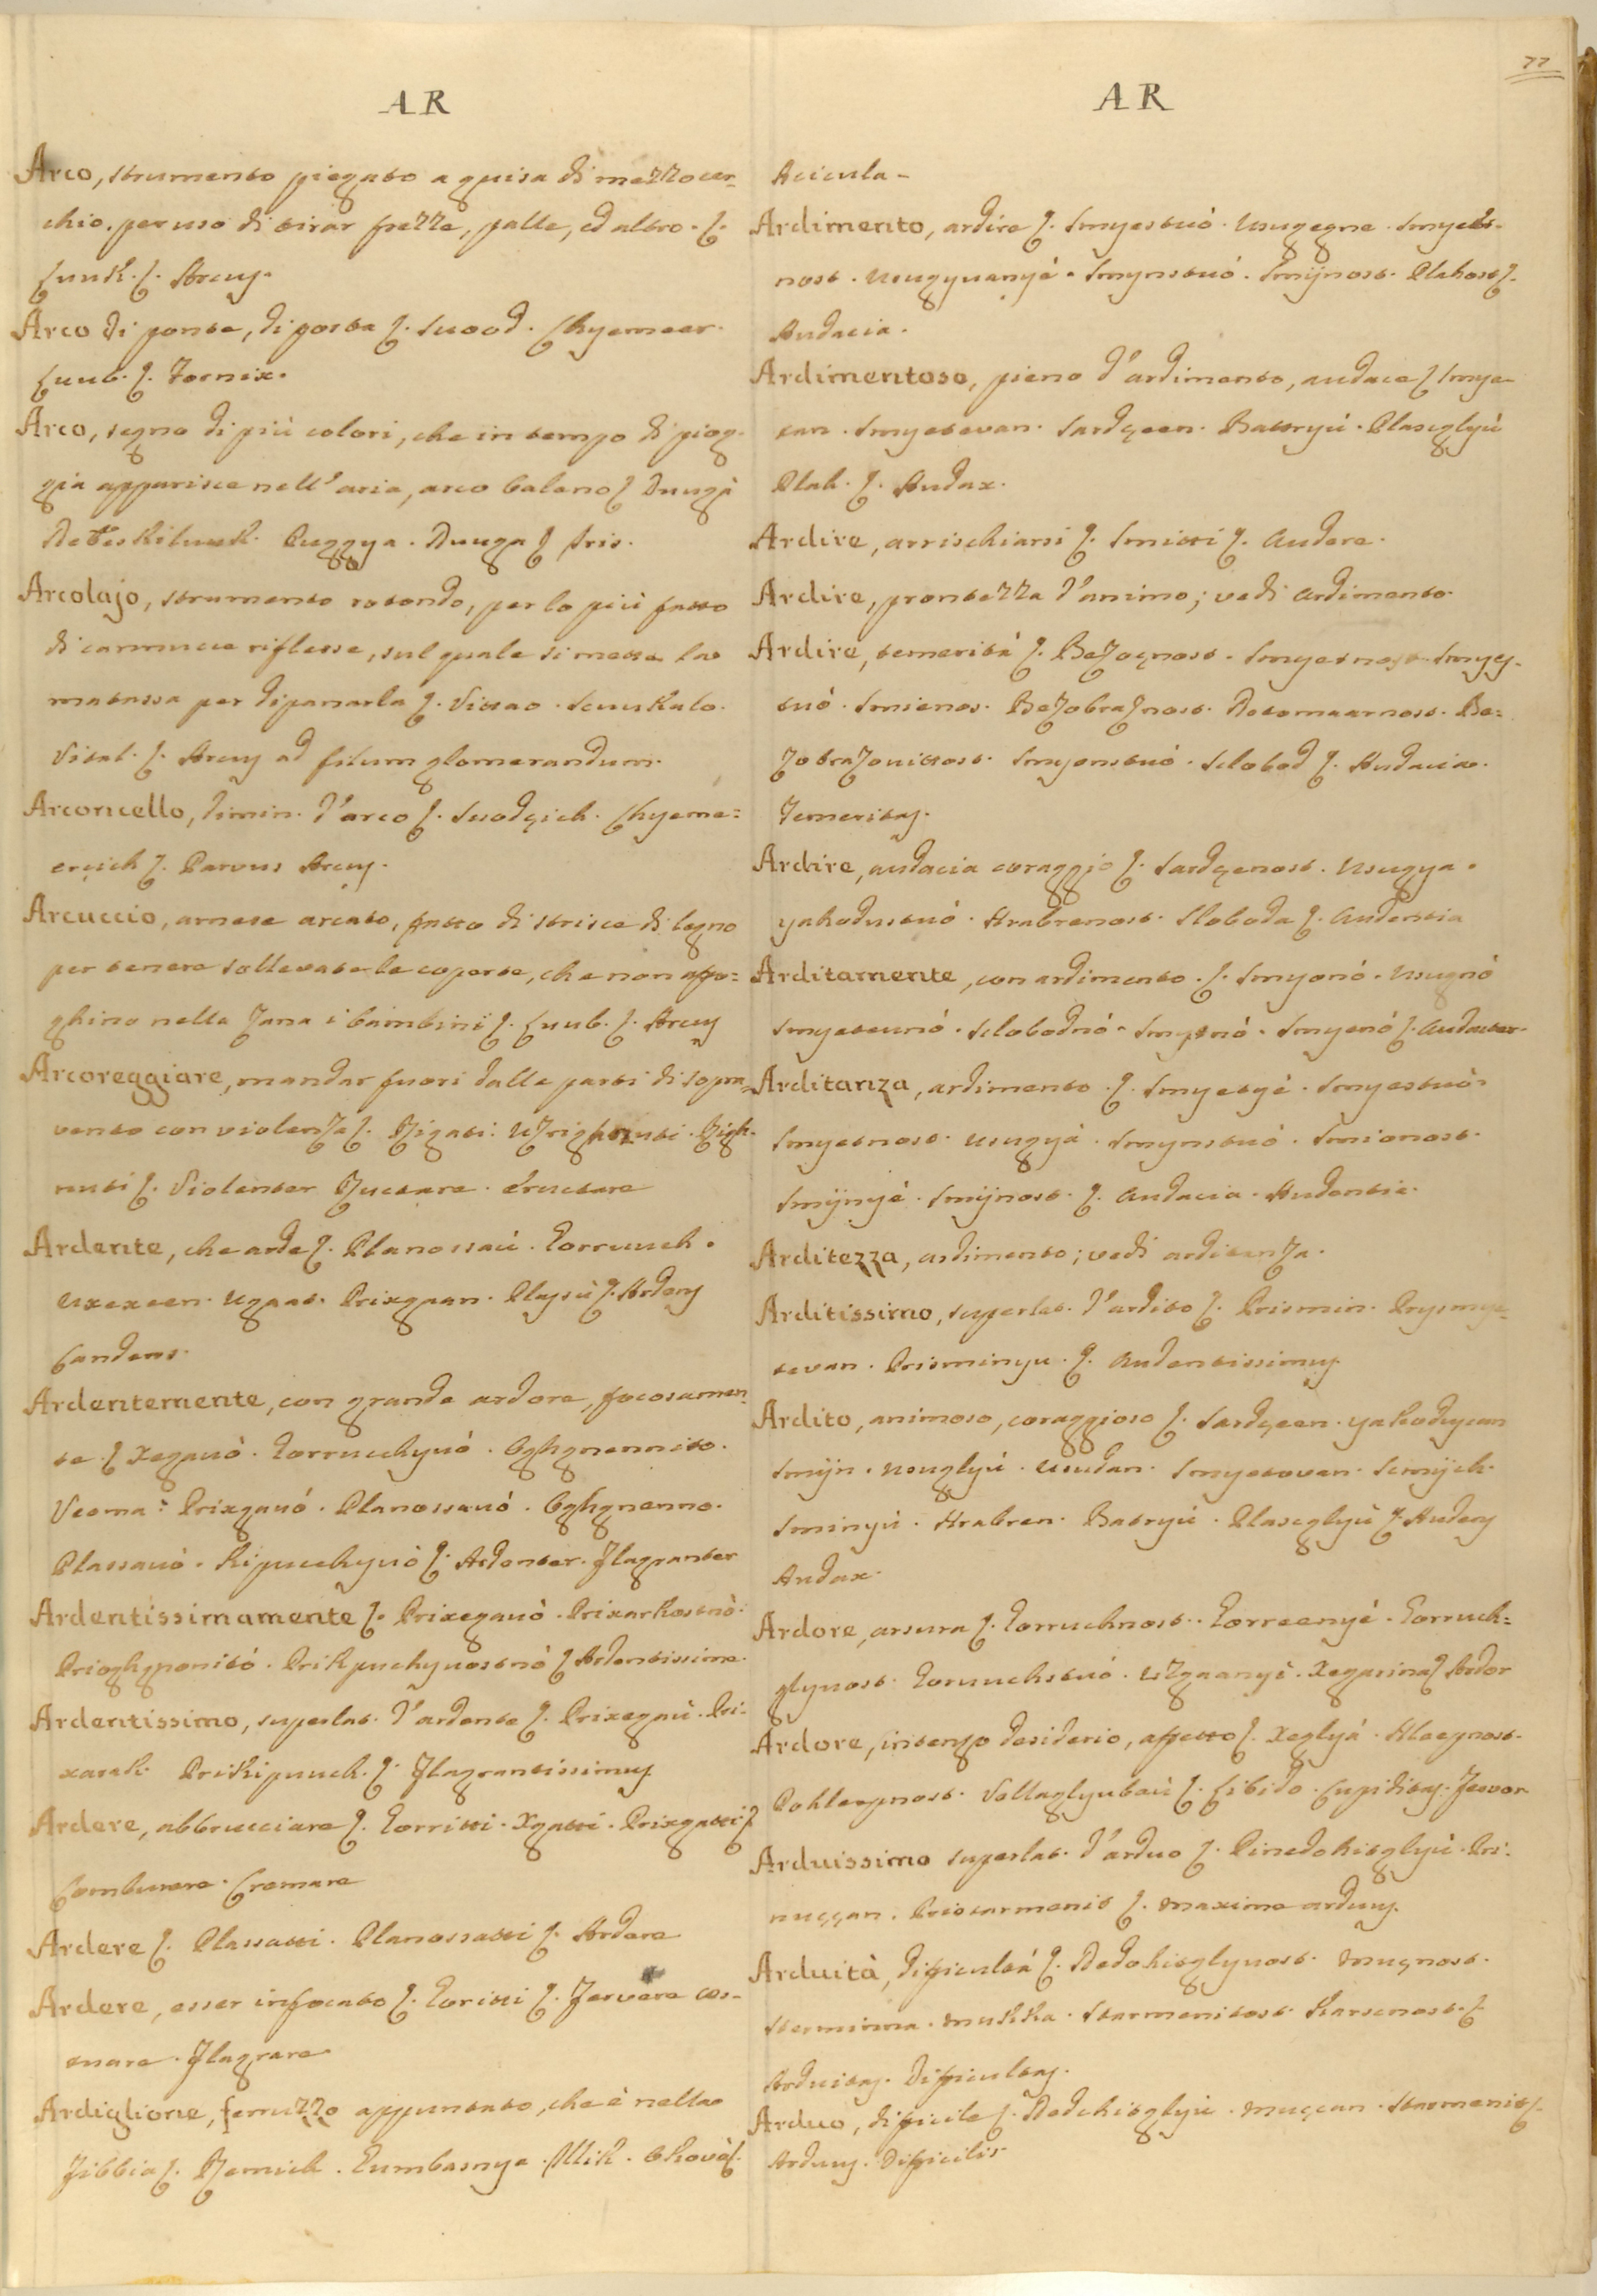 77
AR
Arco, strumento piegato a guisa di mezzocer-
chio. per uso di tirar frezze, palle, ed altro. ſ.
Luuk. ſ. Arcus.
Arco di ponte, di porta ſ. Svood. Chyemeer.
Luub. ſ. Fornix.
Arco, segno di più colori, che in tempo di piog-
gia apparisce nell'aria, arco baleno ſ Duugà
Puggya. Duuga ſ Iris.
Arcolajo, strumento rotondo, per lo più fatto
di cannucce riflesse, sul quale si mette la
matassa per dipanarla ſ. Vittao. Scuukalo.
Vital. ſ. Arcus ad filum glomerandum.
Arconcello, dimin. d'arco ſ. Svodçich. Chyeme=
erçich ſ. Parvus Arcus.
Arcuccio, arnese arcato, fatto di strisce di legno
per tenere sollevate le coperte, che non affo=
ghino nella zana i bambini ſ. Luub. ſ. Arcus
Arcoreggiare, mandar fuori dalle parti di sopra
vento con violenza ſ. Rigati. Rigk-
nuti ſ. Violenter Ructare. Eructare
Ardente, che arde ſ. Planossaú. Gorruuch.
Uxexeen. Ugaat. Prixgaan. Playsú ſ. Ardens
Candens.
Ardentemente, con grande ardore, focosamen-
te ſ Xegauò. Gorrucchyuò. Oghgnennito.
Veoma: Prixgauó. Planossauó. Oghgnenno.
Plassauò. Kipucchyuò ſ. Ardenter. Flagranter
Ardentissimamente ſ. Prixegauò. Prixarkostnò.
Prioghgnenitó. Prikpuchyuostnò ſ Ardentissime.
Ardentissimo, superlat. d'ardente ſ. Prixegaú. Pri-
xarak. Prikipuuch. ſ. Flagrantissimus
Ardere, abbrucciare ſ. Gorritti. Xgatti. Prixgatti ſ
Comburere. Cremare
Ardere ſ. Plassatti. Planossatti ſ. Ardere
Ardere, esser infocato ſ. Goritti ſ. Fervere aes-
tuare. Flagrare
Ardiglione, ferruzzo appuntato, che è nella
fibbia ſ. Remich. Gumbasnye. Okovà ſ.
AR
Acicula.
Ardimento, ardire ſ. Smyestuò. Usugegne. Smyet-
nost. Usugyuanyé. Smynstuó. Smijnost. Plahost ſ.
Audacia.
Ardimentoso, pieno d'ardimento, audace ſ Smye-
tan. Smyetevan. Sardçeen. Battryú. Plaseglyú
Plah. ſ. Audax.
Ardire, arrischiarsi ſ. Smitti ſ. Audere.
Ardire, prontezza d'animo; vedi Ardimento.
Ardire, temerità ſ. Bezoçnost. Smyetnost. Smyes-
tuó. Smienos. Bezobraznost. Be=
Smyenstuó. Slobod ſ. Audacia.
Temeritas.
Ardire, audacia coraggio ſ. Sardçenost. Usugya.
yakodustuó. Hrabrenost. Sloboda ſ. Audentia
Arditamente, con ardimento. ſ. Smyonó. Usugnó
Smyeteunó. Slobodnó. Smyetnó. Smyenó ſ. Audacter.
Arditanza, ardimento. ſ. Smyetyé. Smyestuò.
Smyetnost. Usugyá. Smynstuó. Smionost.
Smijnyé. Smijnost. ſ. Audacia. Audentia.
Arditezza, ardimento; vedi arditanza.
Arditissimo, superlat. d'ardito ſ. Prismin. Prysmye-
tevan. Prisminyu. ſ. Audentissimus
Ardito, animoso, coraggioso ſ. Sardçeen. yakodyean
Smijn. Usuglyú. Usudan. Smyetovan. Smijch.
Sminyú. Hrabren. Batryú. Plaseglyú ſ. Audens
Audax.
Ardore, arsura ſ. Gorruchnost. Gorreenyé. Gorruch=
glyuost. Goruuchstuó. Uzgaanyé. Xegarina ſ Ardor
Ardore, intenso desiderio, affetto ſ. Xeglyá. Hleeynost.
Pohleepnost. ſ. Libido. Cupiditas. Fervor
Arduissimo superlat. d'arduo ſ. Pri-
nuççan. Pristarmenit ſ. Maxime arduus.
Arduità, dificultá ſ. Nedokitglyuost. Muçnost.
Stermina. Mukka. Starmenitost. Karscnost. ſ
Arduitas. Dificultas.
Arduo, dificile ſ. Nedokitglyú. Muçcan. Starmenit ſ.
Arduus. Dificilis